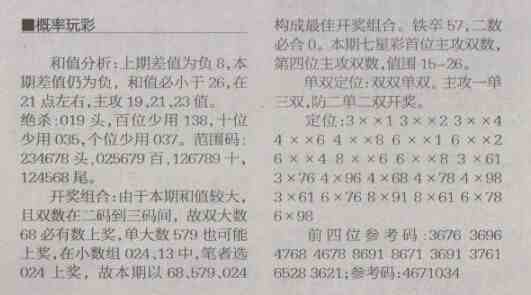 ■概率玩彩
和值分析:上期差值为负8,本
期差值仍为负，和值必小于26,在
21点左右,主攻19,21,23值。
绝杀:019头,百位少用138,十位
少用035,个位少用037。范围码:
234678头,025679百,126789十,
124568尾。
开奖组合:由于本期和值较大,
且双数在二码到三码间，故双大数
68必有数上奖,单大数579也可能
上奖,在小数组024、13中,笔者选
024上奖，故本期以68、579、024
构成最佳开奖组合。铁卒57,二数
必合0。本期七星彩首位主攻双数,
第四位主攻双数,值围15-26。
单双定位:双双单双。主攻一单
三双,防二单二双开奖。
定位:3××1 3××2 3××4
4××6 4××8 6××1 6××2
6××4 8××6 6××8 3×61
3×76 4×96 4×68 4×78 4×98
3×61 6×76 8×91 8×61 6×78
6×98
前四位参考码:3676 3696
4768 4678 8691 8671 3691 3761
6528 3621;参考码:4671034